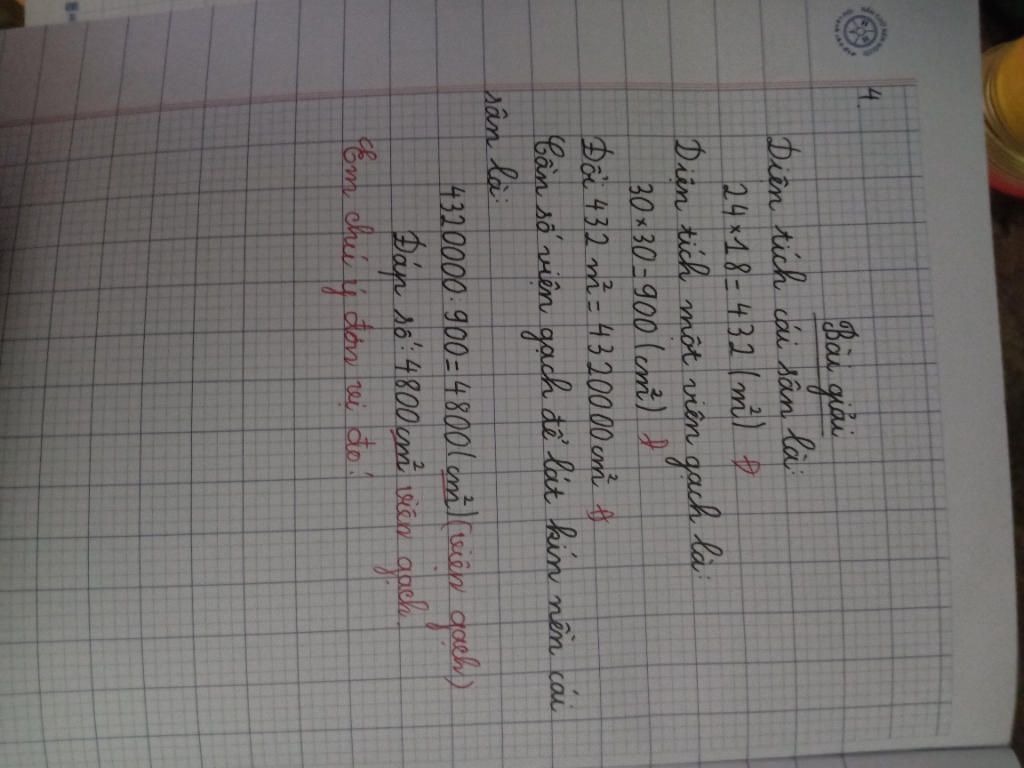 4.
Bài giải
Diện tích cái sân là:
24 × 18 = 432 (m²)
Diện tích một viên gạch là:
30 × 30 = 900 (cm²)
Đổi 432 m² = 4320000 cm²
Cần số viện gạch để lát kín nền cái
sân là:
4320000 : 900 = 4800 (cm²) (viên gạch)
Đáp số: 4800 cm² viên gạch.
Em chú ý đơn vị đo!